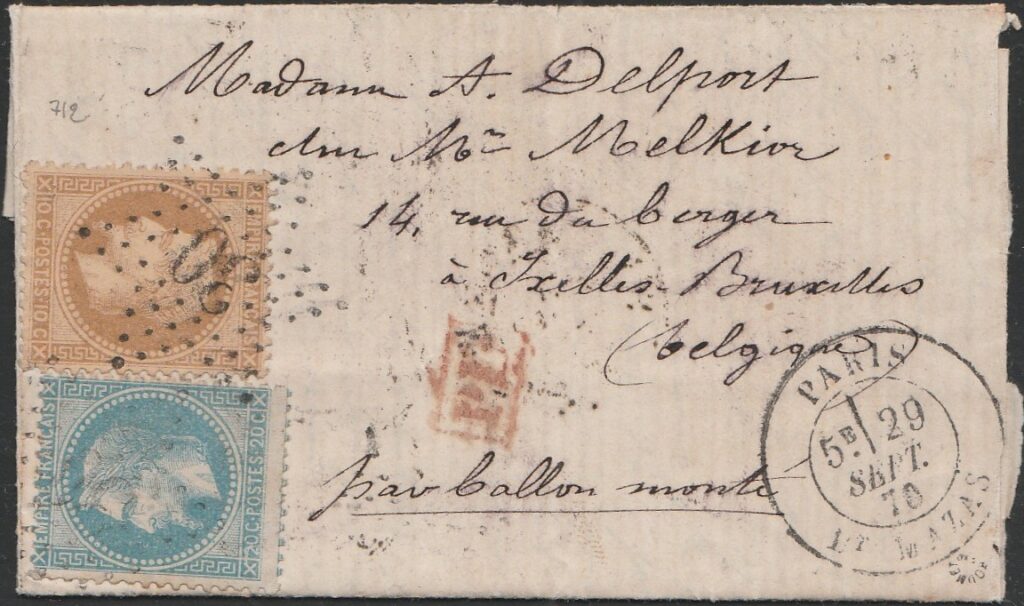 Madame A. Delport
chez Mr Melkior
14, rue du berger
à Ixelles-Bruxelles
(belgique)
par ballon monté
712
10 C·POSTES·10 C
20
EMPIRE FRANÇAIS
20 C·POSTES·20 C
PD
PARIS
5E 29
SEPT.
70
Bt MAZAS